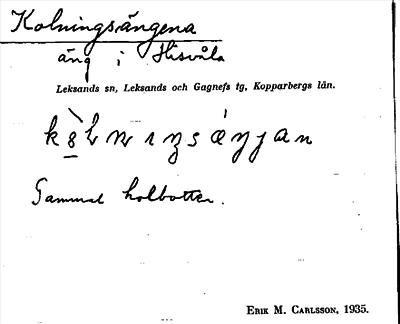 Kolningsängena
äng i Hisvåla
Leksands sn, Leksands och Gagnefs tg, Kopparbergs län.
Gammal kolbotten.
ERIK M. CARLSSON, 1935.